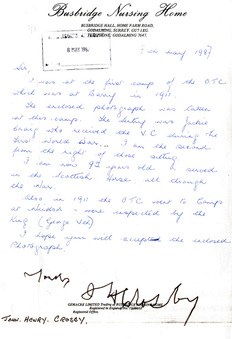 Busbridge Nursing Home
BUSBRIDGE HALL, HOME FARM ROAD,
GODALMING, SURREY, GU7 1EG.
TELEPHONE: GODALMING
8 MAY
5th May 198
Sir,
I was at the first camp of the OTC
which was at in 1911
The enclosed photograph was taken
at this camp. The sitting was
who received the V C during the
First World War. I am the second
from the right of those sitting.
I am now 92 years old & served
in the Scottish Horse all through
the War.
Also in 1911 the OTC went to Camp
at & were inspected by the
King (George Vth)
I hope you will accept the enclosed
Photograph
Yours
J H Crosby
JOHN. HENRY. CROSBY.
Registered Office.